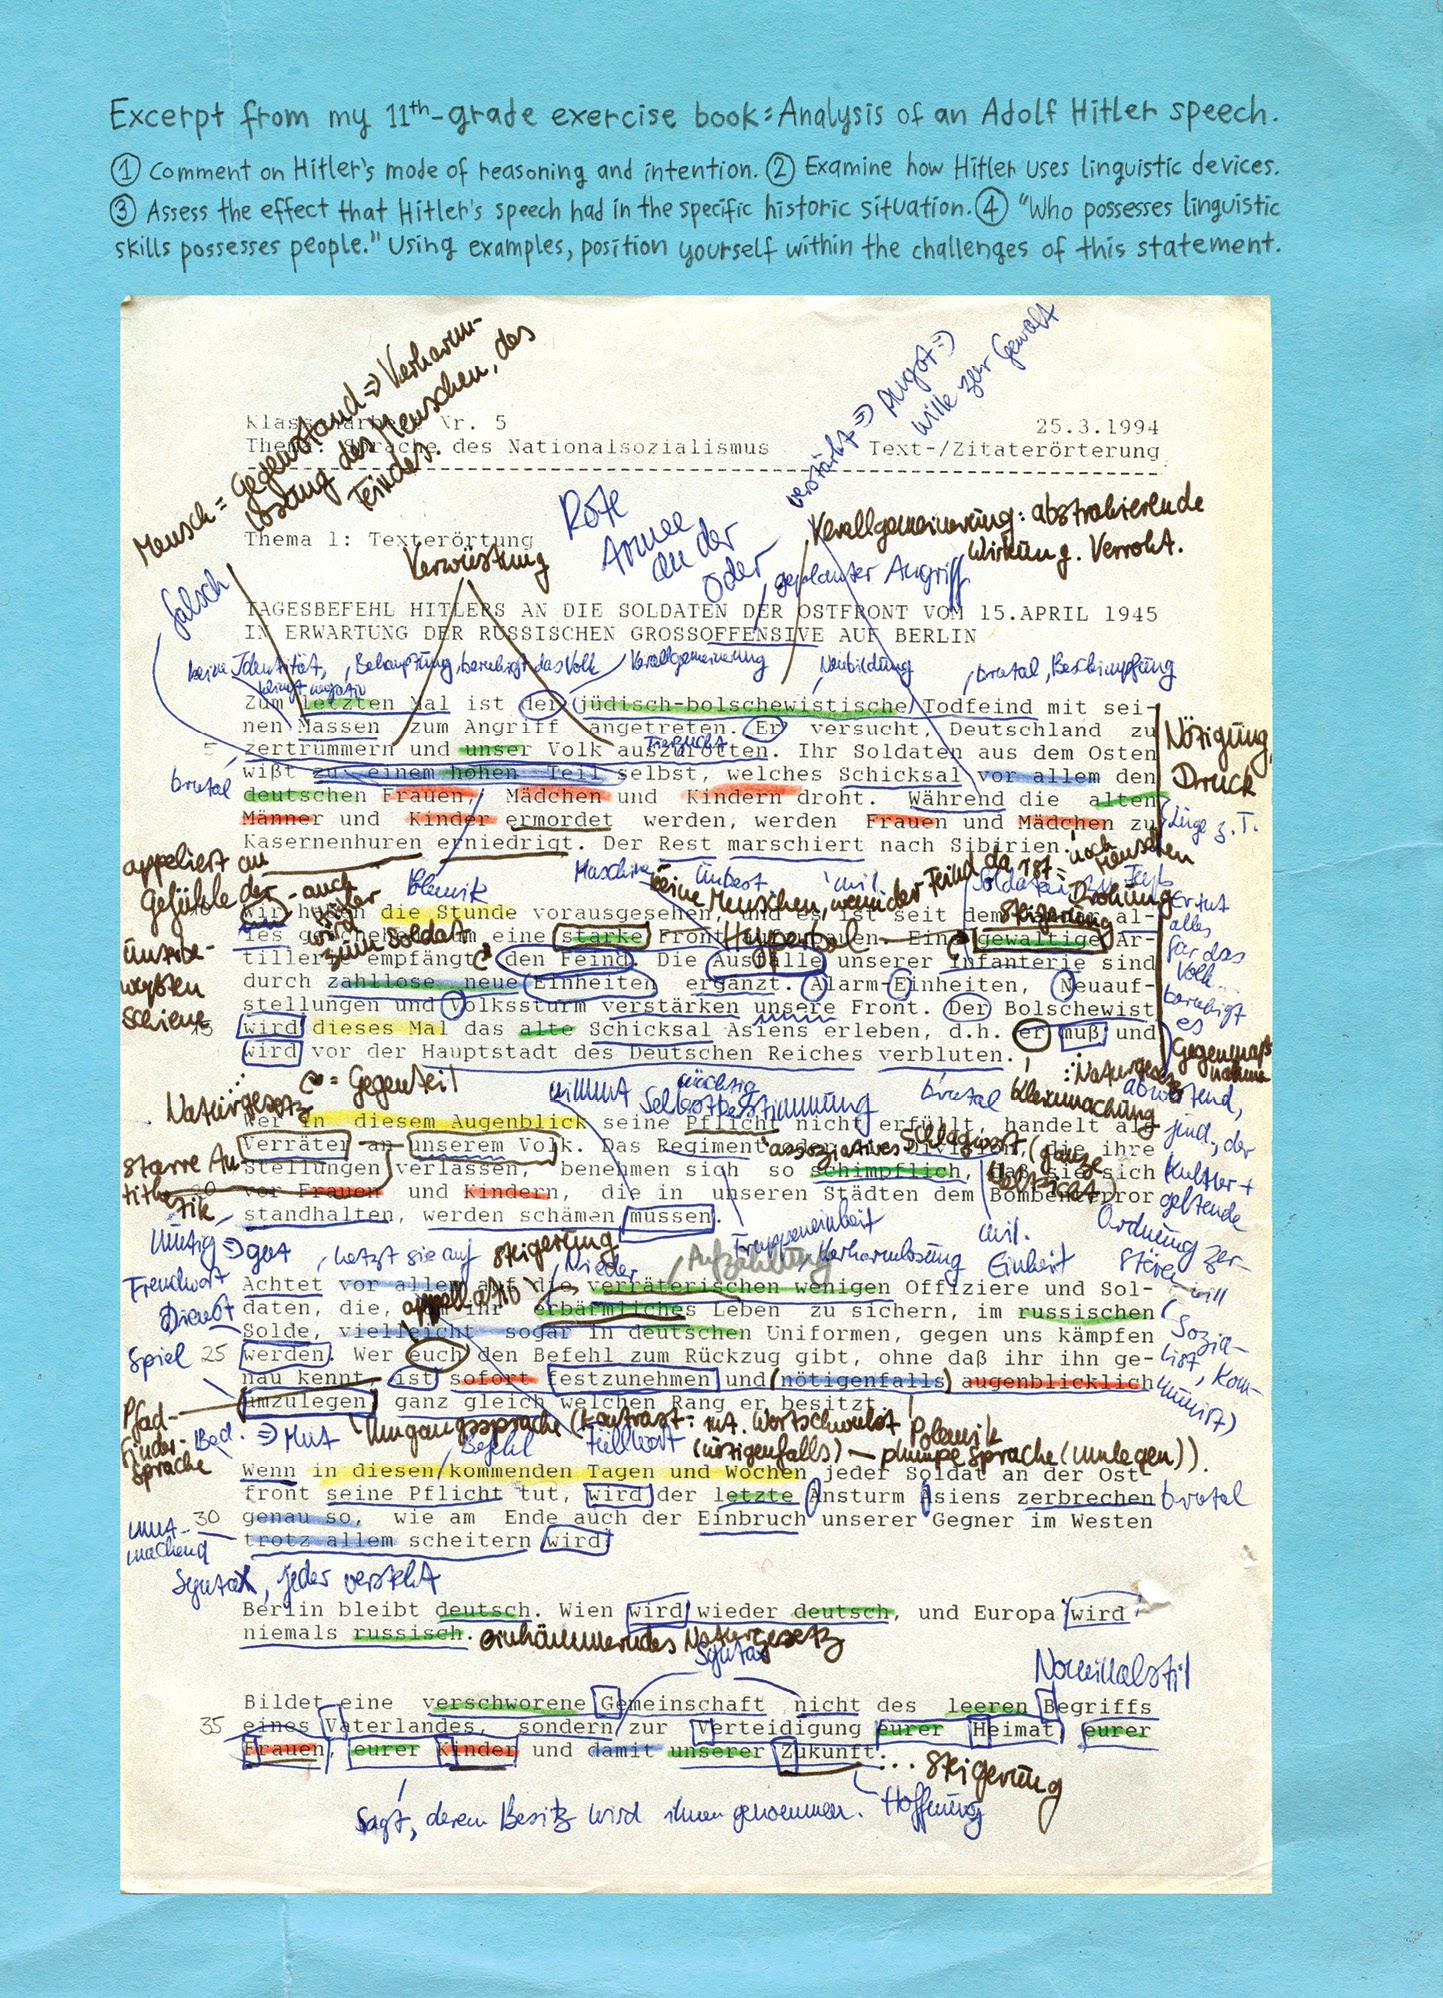 Excerpt from my 11th-grade exercise book: Analysis of an Adolf Hitler speech.
① Comment on Hitler's mode of reasoning and intention. ② Examine how Hitler uses linguistic devices.
③ Assess the effect that Hitler's speech had in the specific historic situation. ④ "Who possesses linguistic
skills possesses people." Using examples, position yourself within the challenges of this statement.
Mensch = Gegenstand => Verharm-
losung des Menschen, des
Feindes.
verstärkt => Angst =>
Wille zur Gewalt
Klassenarbeit Nr. 5
25.3.1994
Thema: Sprache des Nationalsozialismus
Text-/Zitaterörterung
Rote
Armee
an der
Oder
Verallgemeinerung: abstrahierende
Wirkung. Verroht.
Thema 1: Texterörtung
Verwüstung
geplanter Angriff
falsch
TAGESBEFEHL HITLERS AN DIE SOLDATEN DER OSTFRONT VOM 15.APRIL 1945
IN ERWARTUNG DER RUSSISCHEN GROSSOFFENSIVE AUF BERLIN
keine Identität, Behauptung, beruhigt das Volk Verallgemeinerung Neubildung brutal, Beschimpfung
klingt negativ
Zum letzten Mal ist der jüdisch-bolschewistische Todfeind mit sei-
nen Massen zum Angriff angetreten. Er versucht, Deutschland zu
Nötigung,
Druck
Tierzucht
5 zertrümmern und unser Volk auszurotten. Ihr Soldaten aus dem Osten
wißt zu einem hohen Teil selbst, welches Schicksal vor allem den
brutal
deutschen Frauen, Mädchen und Kindern droht. Während die alten
Männer und Kinder ermordet werden, werden Frauen und Mädchen zu
Lüge z.T.
Kasernenhuren erniedrigt. Der Rest marschiert nach Sibirien.
appeliert an
Gefühle der
auch
Polemik
keine Menschen, wenn der Feind da ist
Drohung
Steigerung
Wir haben die Stunde vorausgesehen, und es ist seit dem al-
zum Soldat
Hyperbel
les geschehen, um eine starke Front aufzubauen. Eine gewaltige Ar-
tillerie empfängt den Feind. Die Ausfälle unserer Infanterie sind
durch zahllose neue Einheiten ergänzt. Alarm-Einheiten, Neuauf-
stellungen und Volkssturm verstärken unsere Front. Der Bolschewist
alles
für das
Volk...
beruhigt
es
Schiene
15 wird dieses Mal das alte Schicksal Asiens erleben, d.h. er muß und
wird vor der Hauptstadt des Deutschen Reiches verbluten.
= Gegenteil
nimmt Selbstbestimmung
brutal
Naturgesetz
Wer in diesem Augenblick seine Pflicht nicht erfüllt, handelt als
Verräter an unserem Volk. Das Regiment oder die Division, die ihre
assoziatives Schlagwort
starre An-
tithe-
tik
Stellungen verlassen, benehmen sich so schimpflich, daß sie sich
20 vor Frauen und Kindern, die in unseren Städten dem Bombenterror
standhalten, werden schämen müssen.
Kultur +
geltende
Ordnung zer-
stören will
Mutig => gut, hetzt sie auf Steigerung
Aufzählung
Truppeneinheit
Verharmlosung
mil.
Einheit
Fremdwort
Achtet vor allem auf die verräterischen wenigen Offiziere und Sol-
Dienst
daten, die, um ihr erbärmliches Leben zu sichern, im russischen
Solde, vielleicht sogar in deutschen Uniformen, gegen uns kämpfen
(Sozia-
list, Kom-
munist)
Spiel
25 werden. Wer euch den Befehl zum Rückzug gibt, ohne daß ihr ihn ge-
nau kennt, ist sofort festzunehmen und nötigenfalls augenblicklich
umzulegen, ganz gleich welchen Rang er besitzt.
Pfad-
finder-
sprache
=> Mut
Umgangssprache (Kontrast: mt. Wortschwulst
(nötigenfalls) – plumpe Sprache (umlegen)).
Befehl
Füllwort
Polemik
Wenn in diesen kommenden Tagen und Wochen jeder Soldat an der Ost
front seine Pflicht tut, wird der letzte Ansturm Asiens zerbrechen
brutal
30 genau so, wie am Ende auch der Einbruch unserer Gegner im Westen
mut-
machend
trotz allem scheitern wird.
Syntax, jeder versteht
Berlin bleibt deutsch. Wien wird wieder deutsch, und Europa wird
niemals russisch.
einhämmerndes Naturgesetz
Syntax
Nominalstil
Bildet eine verschworene Gemeinschaft nicht des leeren Begriffs
35 eines Vaterlandes, sondern zur Verteidigung eurer Heimat, eurer
Frauen, eurer Kinder und damit unserer Zukunft.
... Steigerung
Sagt, deren Besitz wird ihnen genommen.
Hoffnung